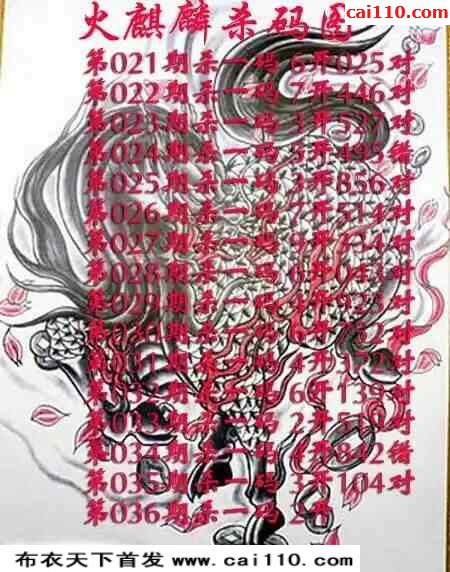 cai110.com
火麒麟杀码图
第021期杀一码 6开025对
第022期杀一码 7开446对
第023期杀一码 3开527对
第024期杀一码 5开495错
第025期杀一码 3开856对
第026期杀一码 7开514对
第027期杀一码 9开734对
第028期杀一码 6开043对
第029期杀一码 开923对
第030期杀一码 开752对
第031期杀一码 4开372对
第032期杀一码 6开139对
第033期杀一码 2开 对
第034期杀一码 4开842错
第035期杀一码 3开104对
第036期杀一码 2开
布衣天下首发 www.cai110.com